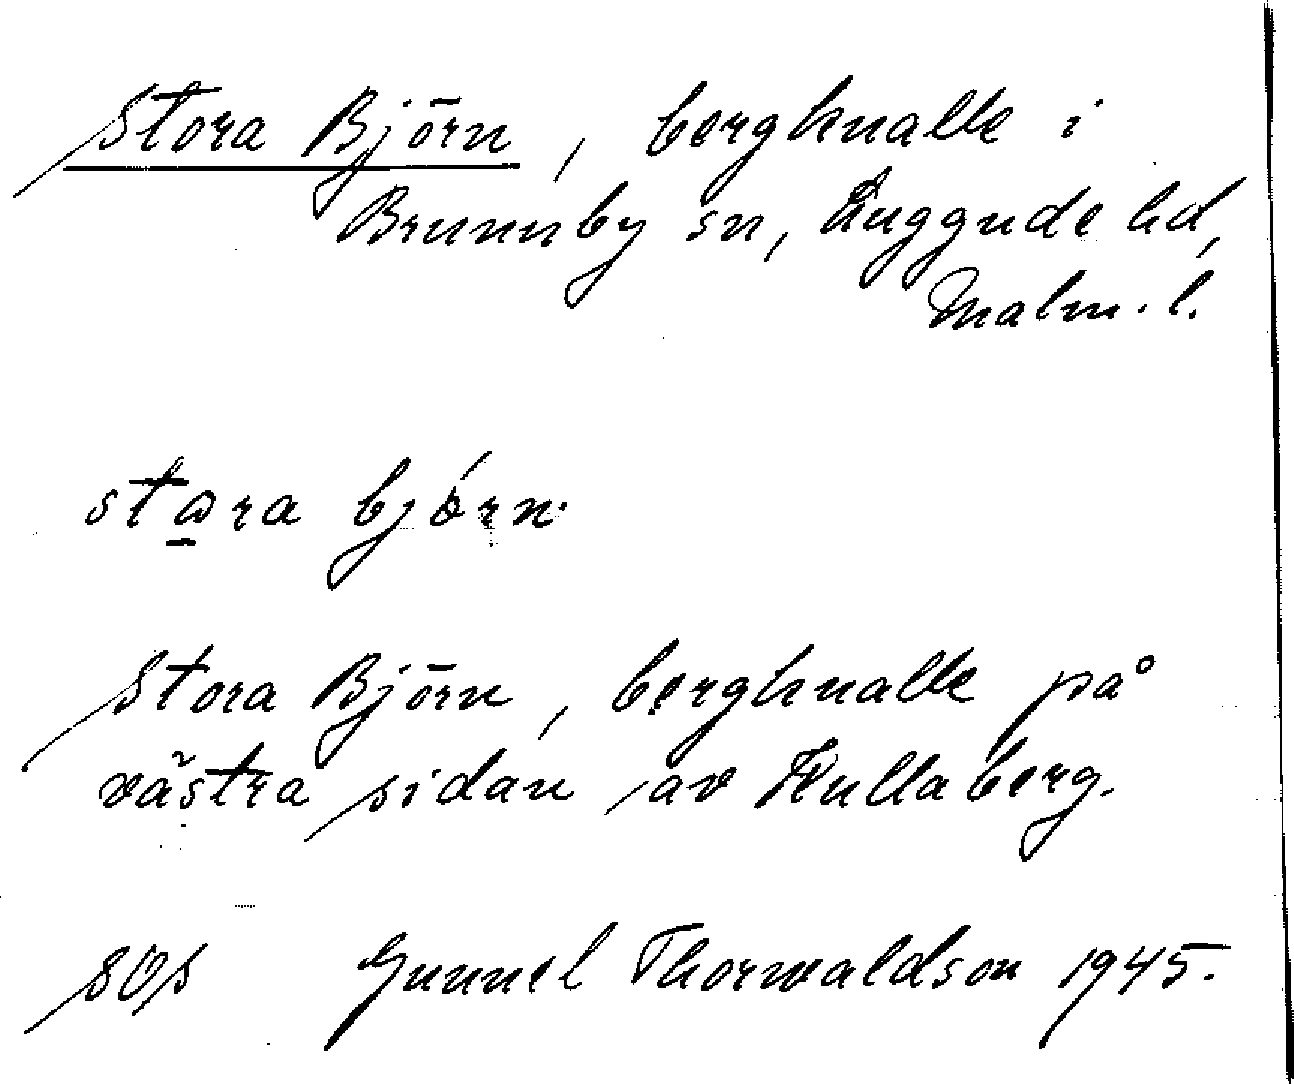 Stora Björn, bergknalle i
Brunnby sn, Luggude hd,
Malm. l.
stωra björn.
Stora Björn, bergknalle på
västra sidan av Kullaberg.
SOS Gunnel Thorwaldson 1945.